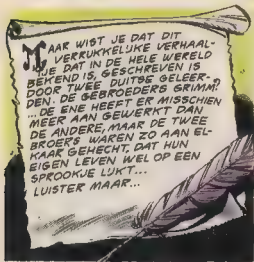 MAAR WIST JE DAT DIT
VERRUKKELIJKE VERHAAL-
TJE DAT IN DE HELE WERELD
BEKEND IS, GESCHREVEN IS
DOOR TWEE DUITSE GELEER-
DEN. DE GEBROEDERS GRIMM?
... DE ENE HEEFT ER MISSCHIEN
MEER AAN GEWERKT DAN
DE ANDERE, MAAR DE TWEE
BROERS WAREN ZO AAN EL-
KAAR GEHECHT, DAT HUN
EIGEN LEVEN WEL OP EEN
SPROOKJE LIJKT...
LUISTER MAAR...